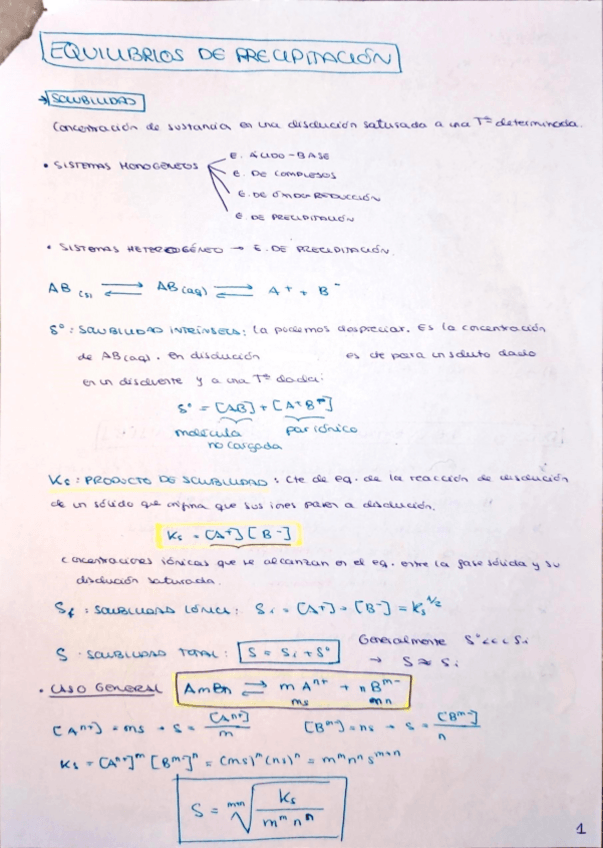 EQUILIBRIOS DE PRECIPITACIÓN
→ SOLUBILIDAD
Concentración de sustancia en una disolución saturada a una Tª determinada.
• SISTEMAS HOMOGÉNEOS
E. ÁCIDO-BASE
E. DE COMPLEJOS
E. DE ÓXIDO REDUCCIÓN
E. DE PRECIPITACIÓN
• SISTEMAS HETEROGÉNEO → E. DE PRECIPITACIÓN.
AB (s) ⇄ AB (aq) ⇄ A⁺ + B⁻
S°: SOLUBILIDAD INTRÍNSECA: la podemos despreciar. Es la concentración
de AB(aq). en disolución es cte para un soluto dado
en un disolvente y a una Tª dada:
S° = [AB] + [A⁺B⁻]
molécula no cargada par iónico
Ks: PRODUCTO DE SOLUBILIDAD: Cte de eq. de la reacción de disolución
de un sólido que origina que sus iones pasen a disolución.
Ks = [A⁺] [B⁻]
concentraciones iónicas que se alcanzan en el eq. entre la fase sólida y su
disolución saturada.
: SOLUBILIDAD IÓNICA: Si = [A⁺] = [B⁻] = Ks^1/2
S: SOLUBILIDAD TOTAL: S = Si + S° Generalmente S° <<< Si
→ S ≈ Si
• CASO GENERAL AmBn ⇄ m Aⁿ⁺ + n Bᵐ⁻
ms
[Aⁿ⁺] = ms → S = [Aⁿ⁺]/m [Bᵐ⁻] = ns → S = [Bᵐ⁻]/n
Ks = [Aⁿ⁺]ᵐ [Bᵐ⁻]ⁿ = (ms)ᵐ (ns)ⁿ = mᵐ nⁿ sᵐ⁺ⁿ
S = ᵐ⁺ⁿ√(Ks / mᵐ nⁿ)
1